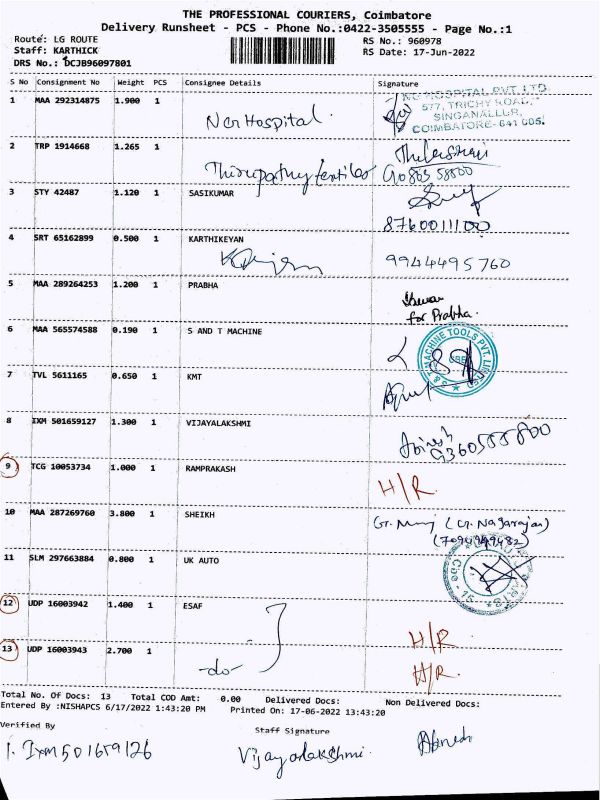 THE PROFESSIONAL COURIERS, Coimbatore
Delivery Runsheet - PCS - Phone No.:0422-3505555 - Page No.:1
Route: LG ROUTE
Staff: KARTHICK
DRS No.: DCJB96097801
RS No.: 960978
RS Date: 17-Jun-2022
S No Consignment No Weight PCS Consignee Details Signature
1 MAA 292314875 1.900 1 Ncr Hospital.
HOSPITAL PVT. LTD.
577, TRICHY ROAD,
SINGANALLUR,
COIMBATORE-641 005.
2 TRP 1914668 1.265 1 Thirupathy textiles
3 STY 42487 1.120 1 SASIKUMAR
8760011100
4 SRT 65162899 0.500 1 KARTHIKEYAN 9944495760
5 MAA 289264253 1.200 1 PRABHA
for Prabha.
6 MAA 565574588 0.190 1 S AND T MACHINE
S&T MACHINE TOOLS PVT. LIMITED
7 TVL 5611165 0.650 1 KMT
8 IXM 501659127 1.300 1 VIJAYALAKSHMI
9360555800
9 TCG 10053734 1.000 1 RAMPRAKASH H/R
10 MAA 287269760 3.800 1 SHEIKH (G. Nagarajan)
11 SLM 297663884 0.800 1 UK AUTO
Cbe - 15
12 UDP 16003942 1.400 1 ESAF H/R
13 UDP 16003943 2.700 1 -do- H/R.
Total No. Of Docs: 13 Total COD Amt: 0.00 Delivered Docs: Non Delivered Docs:
Entered By :NISHAPCS 6/17/2022 1:43:20 PM Printed On: 17-06-2022 13:43:20
Verified By Staff Signature
1. IXM 501659126 Vijayalakshmi.